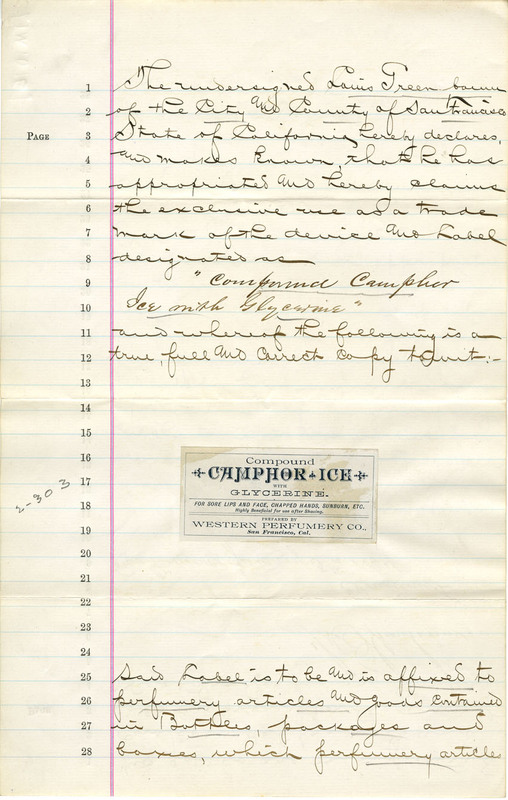 1 The undersigned Louis Greenbaum
2 of the City and County of San Francisco
PAGE 3 State of California, hereby declares,
4 and makes known, that he has
5 appropriated and hereby claims
6 the exclusive use as a trade
7 mark of the device and Label
8 designated as
9 "Compound Camphor
10 Ice with Glycerine"
11 and whereof the following is a
12 true, full and correct copy to wit:-
13
14
15
16
Compound
17 CAMPHOR ICE
WITH
GLYCERINE.
2-303
18 FOR SORE LIPS AND FACE, CHAPPED HANDS, SUNBURN, ETC.
Highly Beneficial for use after Shaving.
PREPARED BY
19 WESTERN PERFUMERY CO.,
San Francisco, Cal.
20
21
22
23
24
25 Said Label is to be and is affixed to
26 perfumery articles and goods contained
27 in Bottles, packages and
28 boxes, which perfumery articles